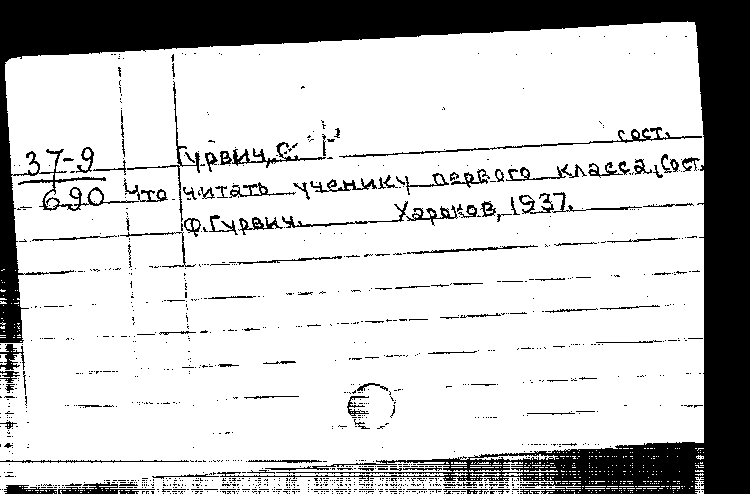 37-9
690
Гурвич, Ф. сост.
Что читать ученику первого класса. (Сост.
Ф. Гурвич. Харьков, 1937.